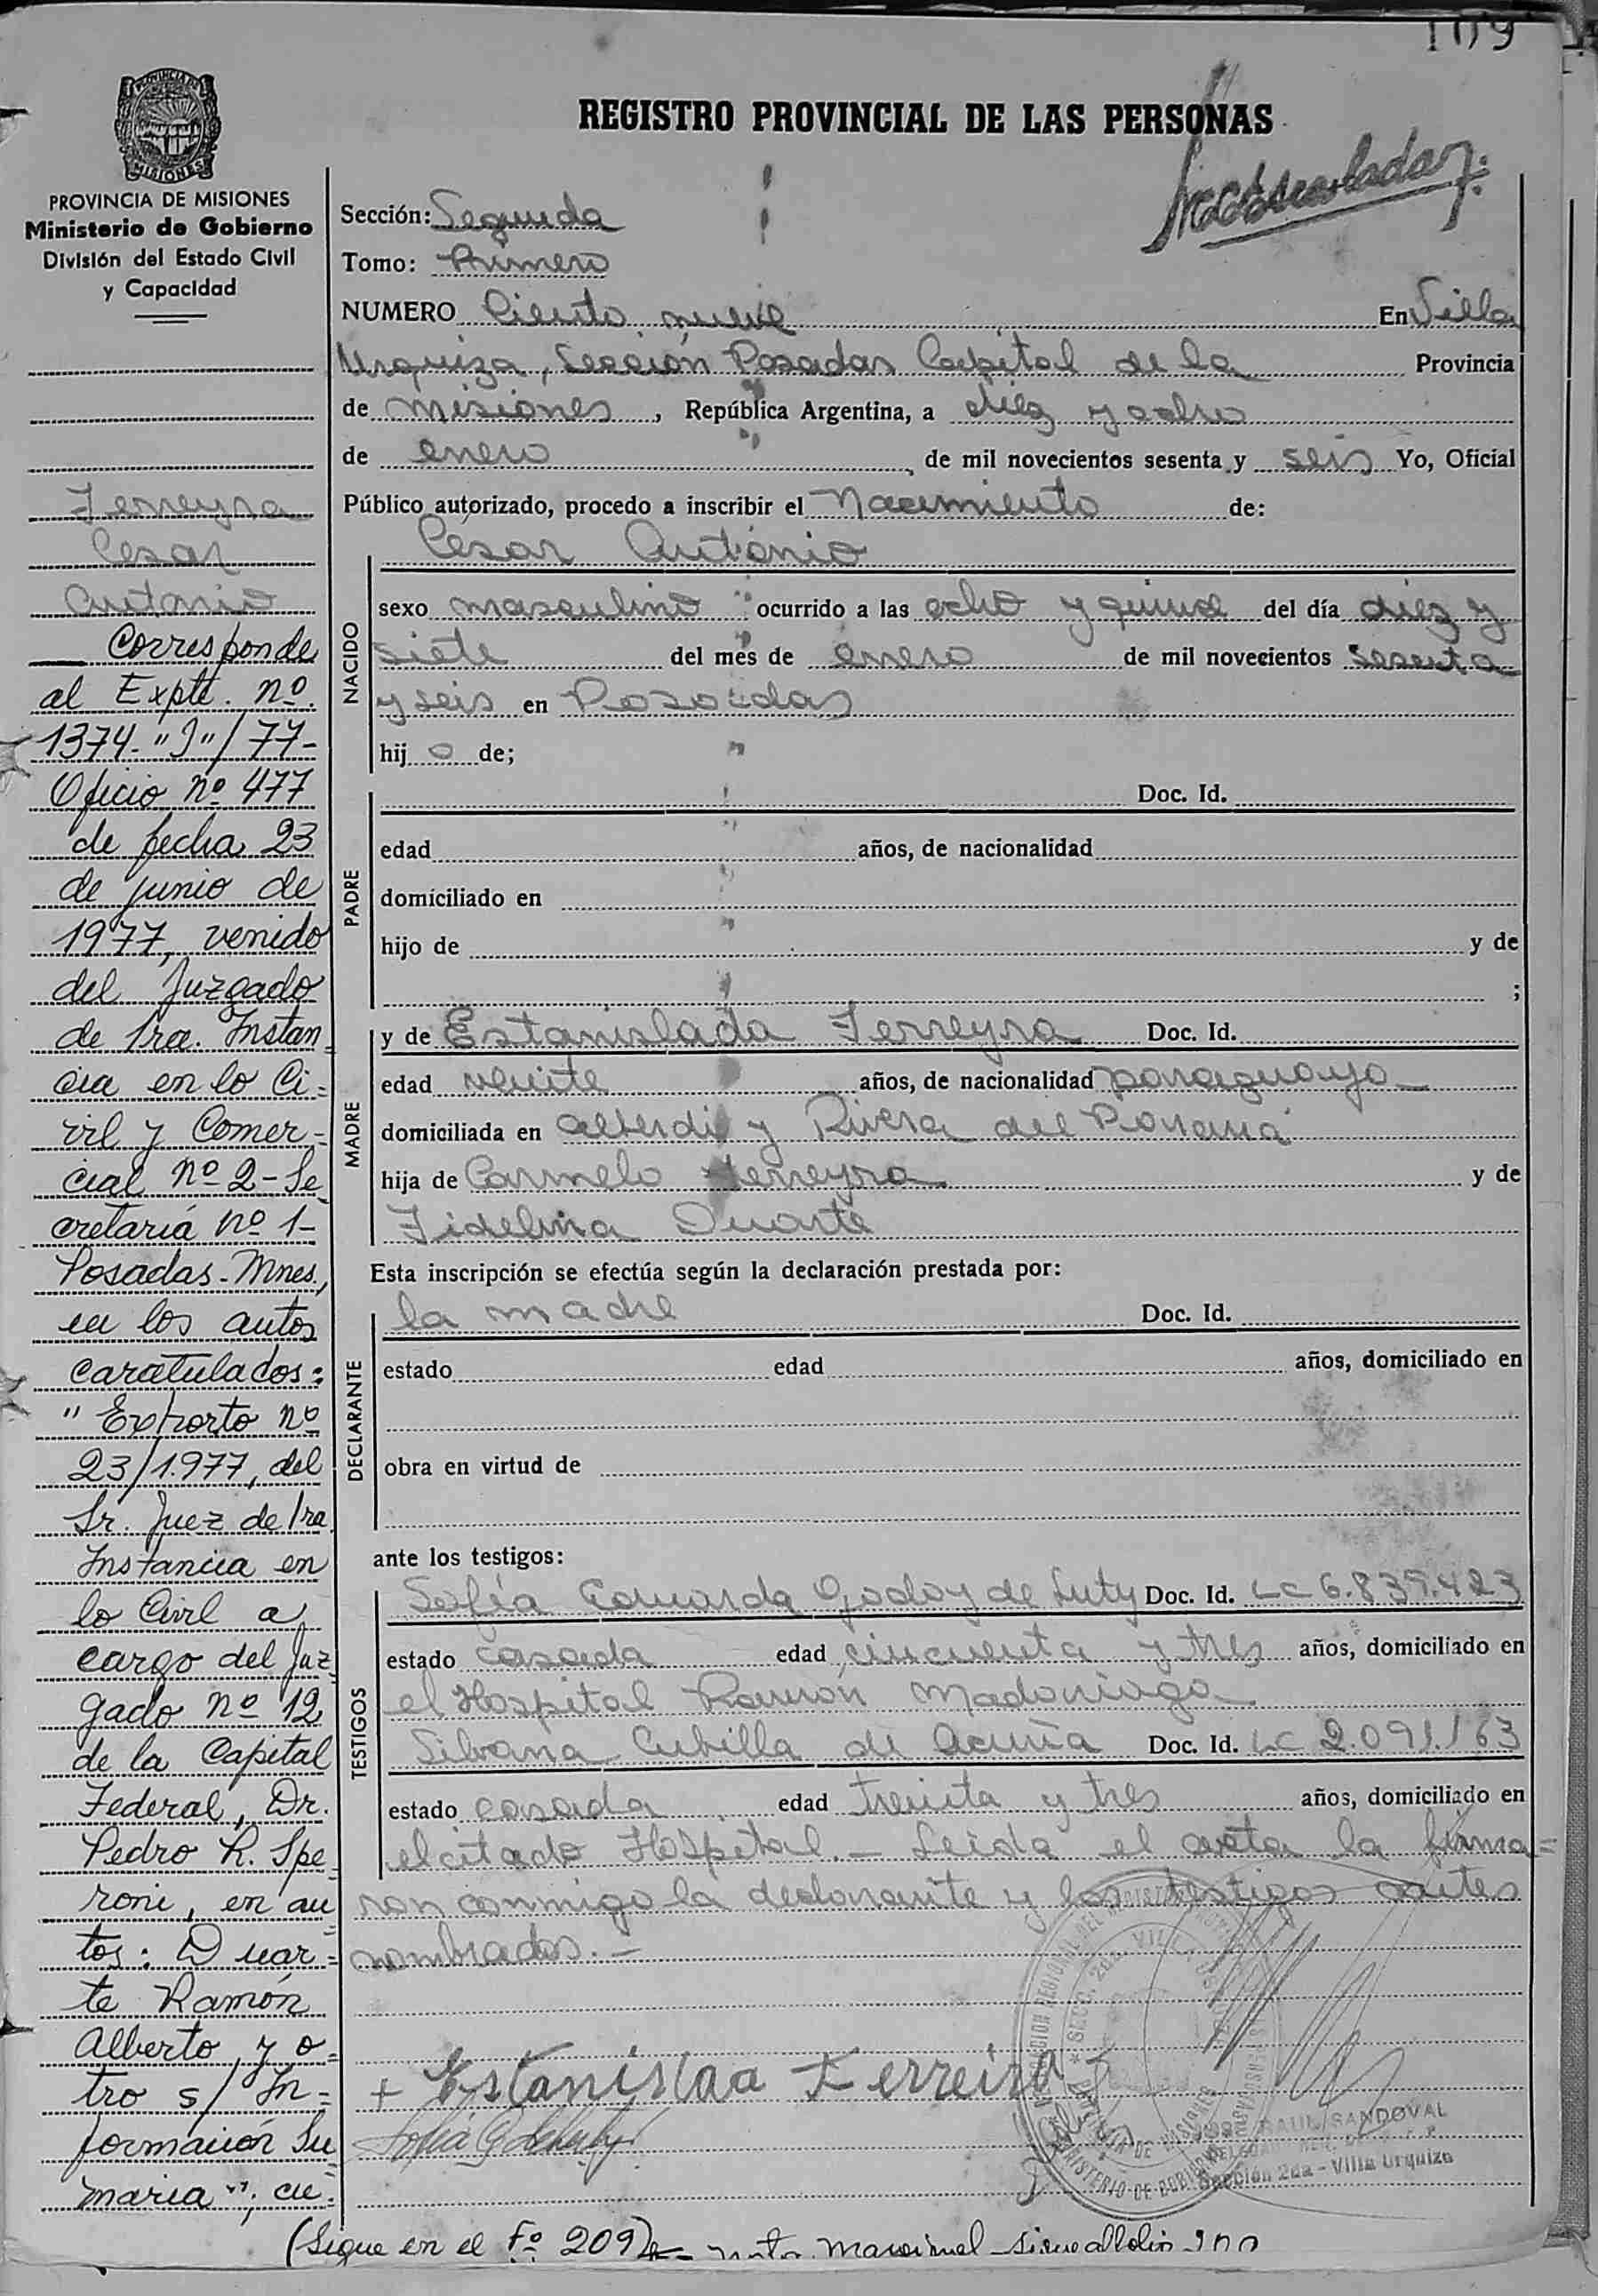 109
PROVINCIA DE
MISIONES
REGISTRO PROVINCIAL DE LAS PERSONAS
PROVINCIA DE MISIONES
Ministerio de Gobierno
División del Estado Civil
y Capacidad
Ferreyra
Cesar
Antonio
Corresponde
al Expte. nº
1374-"J"/77-
Oficio nº 477
de fecha 23
de junio de
1977, venido
del Juzgado
de 1ra. Instan=
cia en lo Ci=
vil y Comer=
cial nº 2-Se
cretaría nº 1-
Posadas-Mnes.,
en los autos
caratulados:
"Exhorto nº
23/1.977, del
Sr. Juez de 1ra
Instancia en
lo Civil a
cargo del Juz
gado nº 12
de la Capital
Federal, Dr.
Pedro R. Spe
roni, en au
tos: Duar=
te Ramón
Alberto y o=
tro s/ In=
formación Su
maria"; cu=
Sección: Segunda
Tomo: Primero
NUMERO Ciento nueve En Villa
Urquiza, Sección Posadas Capital de la Provincia
de Misiones, República Argentina, a diez y ocho
de enero, de mil novecientos sesenta y seis Yo, Oficial
Público autorizado, procedo a inscribir el Nacimiento de:
NACIDO
Cesar Antonio
sexo masculino ocurrido a las ocho y quince del día diez y
siete del mes de enero de mil novecientos sesenta
y seis en Posadas
hijo de;
PADRE
Doc. Id.
edad años, de nacionalidad
domiciliado en
hijo de y de
;
MADRE
y de Estanislada Ferreyra Doc. Id.
edad veinte años, de nacionalidad paraguaya
domiciliada en Alberdi y Rivera del Paraná
hija de Carmelo Ferreyra y de
Fidelina Duarte
Esta inscripción se efectúa según la declaración prestada por:
DECLARANTE
la madre Doc. Id.
estado edad años, domiciliado en
obra en virtud de
ante los testigos:
TESTIGOS
Sofía Eduarda Godoy de Luty Doc. Id. LC 6.839.423
estado casada edad cincuenta y tres años, domiciliado en
el Hospital Ramón Madariaga
Silvana Cubilla de Acuña Doc. Id. LC 2.091.163
estado casada edad treinta y tres años, domiciliado en
el citado Hospital.- Leída el acta la firma=
ron conmigo la declarante y los testigos antes
nombrados.-
+ Estanislaa Ferreira
RAUL SANDOVAL
Sección 2da - Villa Urquiza
(Sigue en el Fº 209) nota marginal